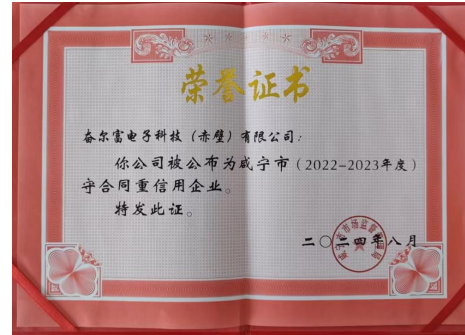 荣誉证书
奋尔富电子科技（赤壁）有限公司：
你公司被公布为咸宁市（2022-2023年度）
守合同重信用企业。
特发此证。
咸宁市市场监督管理局
二〇二四年八月